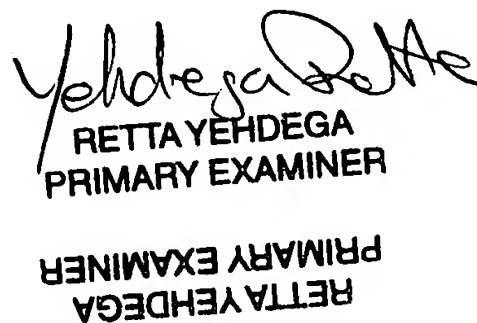 Yehdega Retta
RETTA YEHDEGA
PRIMARY EXAMINER
RETTA YEHDEGA
PRIMARY EXAMINER